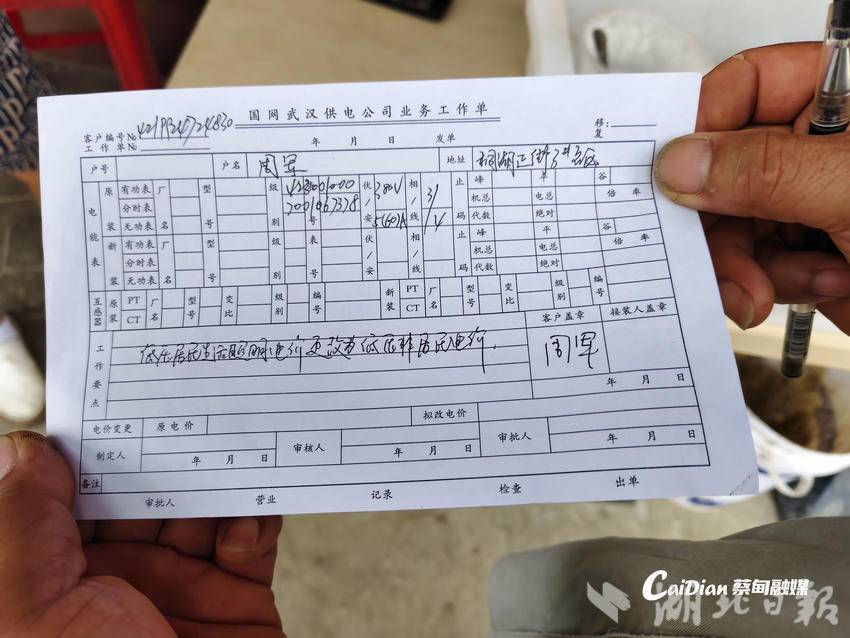 国网武汉供电公司业务工作单
客户编号№
工作单№
年 月 日 发单
移:
复
户号 户名 周军 地址
电能表 原装 有功表 厂名 型号 级别 表号 伏/安 380V 相/线 3/4 止码 峰 平 谷
分时表 5(60)A 机总 电总 倍率
无功表 代数 绝对
新装 有功表 厂名 型号 级别 表号 伏/安 相/线 止码 峰 平 谷
分时表 机总 电总 倍率
无功表 代数 绝对
互感器 原装 PT 厂名 型号 变比 级别 编号 新装 PT 厂名 型号 变比 级别 编号
CT CT
工作要点 客户盖章 接装人盖章
低压居民生活照明电价更改为低压非居民电价.
周军
年 月 日
电价变更 原电价 拟改电价
制定人 年 月 日 审核人 年 月 日 审批人 年 月 日
备注
审批人 营业 记录 检查 出单
CaiDian 蔡甸融媒
湖北日报